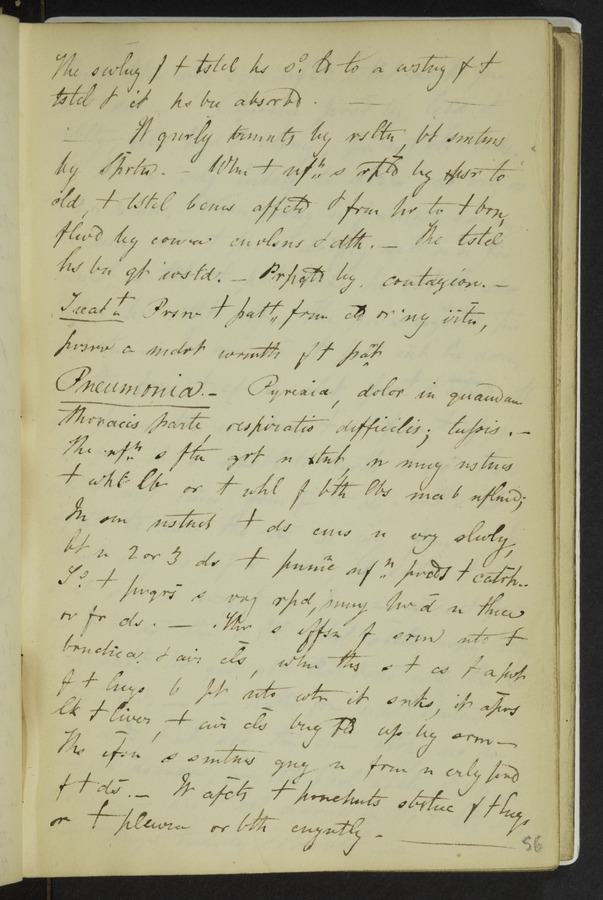 The swlng f + tstcl hs so. ld to a wstng f +
tstcl & it hs bn absorbd. —
— It gnrly trmnts by rsltn, bt smtms
by Sprtn. — Whn + nfn s rptd by xpsr to
cld, + tstcl bcms affctd & frm hr to + brn,
fllwd by coma cnvlsns & dth. — The tstcl
hs bn gt wstd. — Prpgtd by contagion. —
Treatt Prsrv + patt frm cld or
prsrv a modrt wrmth f + pat
Pneumonia. — Pyrexia, dolor in quandam
thoracis parte respiratio difficilis; tussis. —
The nfn s ftn grt n xtnt, n mny nstncs
+ whl lb or + whl f bth lbs ma b nflmd;
In sm nstncs + ds cms n vry slwly,
bt n 2 or 3 ds + pnmc nfn prcds + catrh.
So. + prgrs s vry rpd, mny hvd n three
or fr ds. — Thr s effsn f srm nto +
bronchia & air cls, whn ths s + cs f a prt
f + lngs b pt nto wtr it snks, it aprs
lk + liver, + air cls bng fld up by srm —
Ths efsn s smtms gng n frm n erly prd
f + ds. — It afcts + prnchmts sbstnc f + lngs
or + pleura or bth cnjntly. —
56